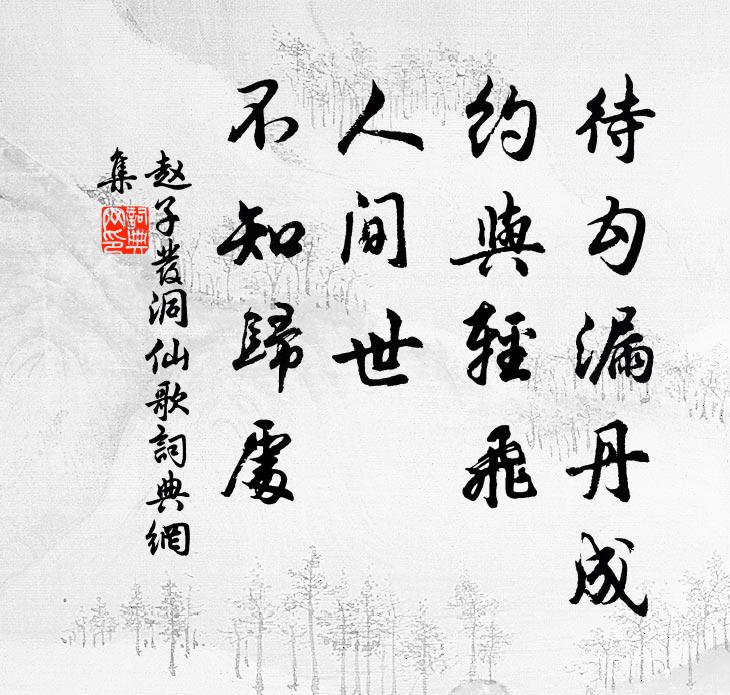 待勾漏丹成
約與輕飛
人间世
不知歸處
赵子發洞仙歌詞典網
集
詞典網印